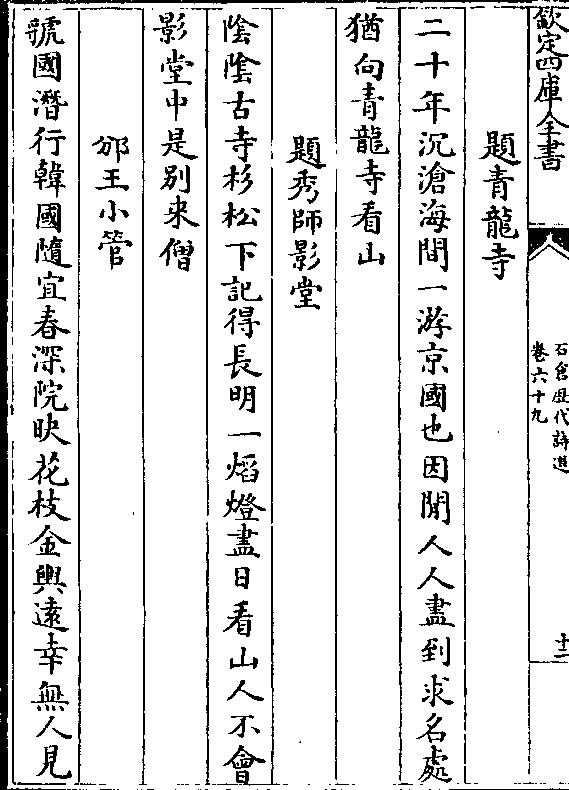 欽定四庫全書
石倉歷代詩選
卷六十九
十二
題青龍寺
二十年沉滄海間一游京國也因閒人人盡到求名處
猶向青龍寺看山
題秀師影堂
陰陰古寺杉松下記得長明一焰燈盡日看山人不會
影堂中是別來僧
邠王小管
虢國潛行韓國隨宜春深院映花枝金輿遠幸無人見